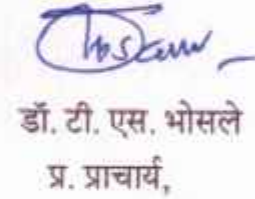 डॉ. टी. एस. भोसले
प्र. प्राचार्य,